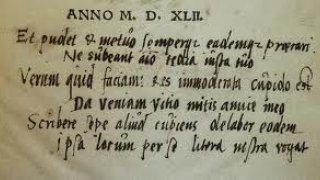 ANNO M. D. XLII.
Et pudet & metuo semperq; eademq; precari
Ne subeant aĩo tedia iusta tuo
Verum quid faciam: res immoderata cupido est
Da veniam vitio mitis amice meo
Scribere sepe aliud cupiens delabor eodem
Ipsa locum per se litera nostra rogat